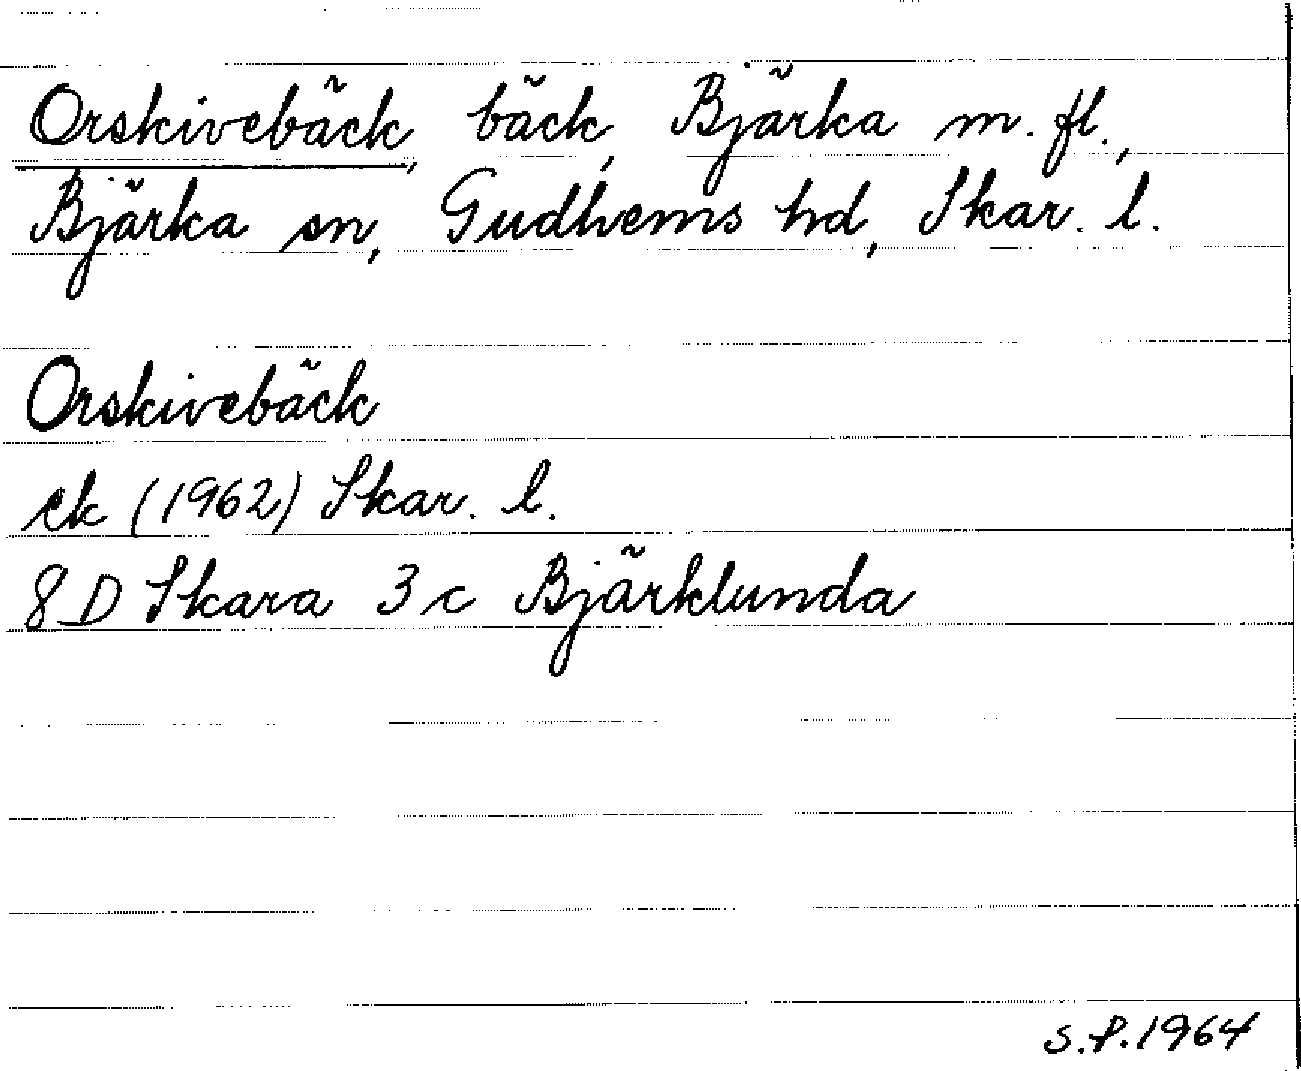 Orskivebäck, bäck, Bjärka m. fl.,
Bjärka sn, Gudhems hd, Skar. l.
Orskivebäck
ek (1962) Skar. l.
8 D Skara 3 c Bjärklunda
S.P. 1964